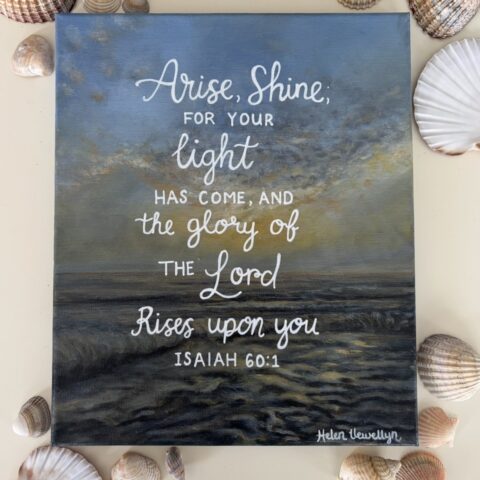 Arise, Shine,
FOR YOUR
light
HAS COME, AND
the glory of
THE Lord
Rises upon you
ISAIAH 60:1
Helen Llewellyn